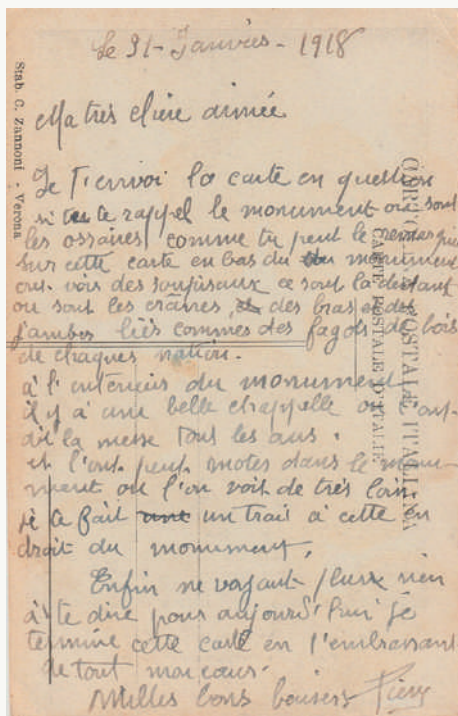 Le 31 - Janvier - 1918
Stab. C. Zannoni - Verona
CARTOLINA POSTALE ITALIANA
CARTE POSTALE D'ITALIE
Ma très chère aimée
Je T'envoi la carte en question
si tu te rappel le monument ou sont
les ossaires, comme tu peut le remarquer
sur cette carte en bas du monument
ont vois des soupiraux ce sont la dedant
ou sont les crânes, des bras et des
jambes liés commes des fagots de bois
de chaques nation.
à l'interieur du monument
il y à une belle chappelle ou ont
dit la messe tous les ans.
et l'ont peut monter dans le monu-
ment ou l'on voit de très loin
je te fait un trait à cette en
droit du monument.
Enfin ne voyant plus rien
à te dire pour aujourd'hui je
termine cette carte en t'embrassant
de tout mon cœur.
Milles bons baisers